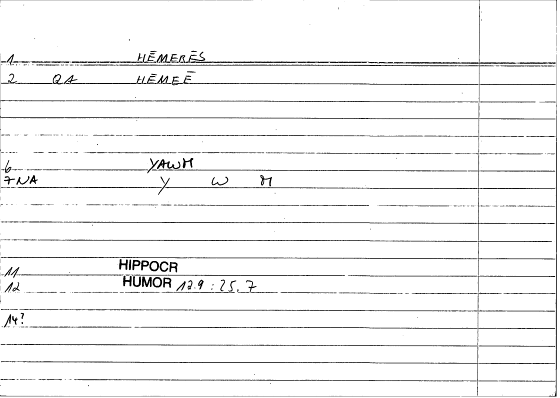 1 HĒMERĒS
2 QA HĒMEĒ
6 YAWM
7 NA Y W M
11 HIPPOCR
12 HUMOR 12.9 : 25.7
14?